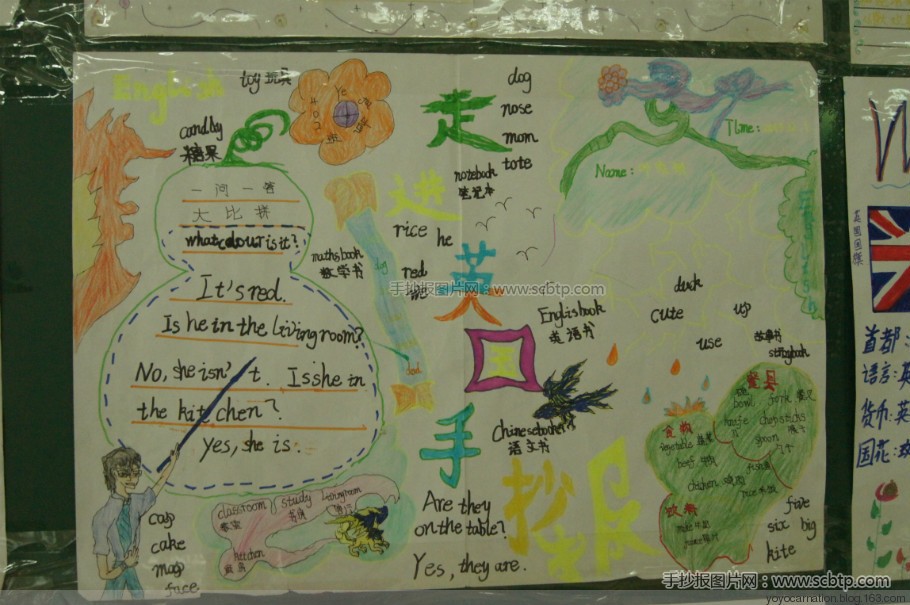 English
toy 玩具
candby
糖果
一问一答
大比拼
what colour is it?
It's red.
Is he in the living room?
No, she isn't. Is she in
the kitchen?
yes, she is.
走
进
英
国
手
抄
报
dog
nose
mom
tote
notebook
笔记本
rice
he
mathsbook
数学书
red
me
Time:
Name:
duck
cute
up
use
故事书
storybook
Englisbook
英语书
Chinesebooke
语文书
餐具
bowl
fork
knife
chopsticks
spoon
食物
vegetables
beef
chicken
饮料
classroom
教室
study
书房
livingroom
kitchen
厨房
cap
cake
map
face
Are they
on the table?
Yes, they are.
five
six
big
kite
英国国旗
首都:
语言:英
货币:英
国花:玫
手抄报图片网：www.scbtp.com
手抄报图片网：www.scbtp.com
yoyocarnation.blog.163.com